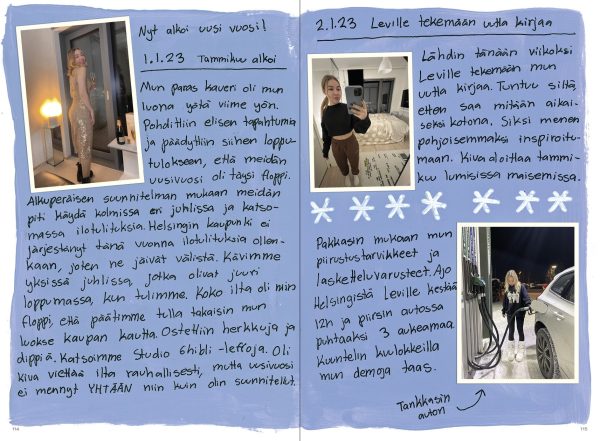 Nyt alkoi uusi vuosi!
1.1.23 Tammikuu alkoi
Mun paras kaveri oli mun
luona ystä viime yön.
Pohdittiin eilisen tapahtumia
ja päädyttiin siihen loppu-
tulokseen, että meidän
uusivuosi oli täysi floppi.
Alkuperäisen suunnitelman mukaan meidän
piti käydä kolmissa eri juhlissa ja katso-
massa ilotulituksia. Helsingin kaupunki ei
järjestänyt tänä vuonna ilotulituksia ollen-
kaan, joten ne jäivät välistä. Kävimme
yksissä juhlissa, jotka olivat juuri
loppumassa, kun tulimme. Koko ilta oli niin
floppi, että päätimme tulla takaisin mun
luokse kaupan kautta. Ostettiin herkkuja ja
dippiä. Katsoimme Studio Ghibli -leffoja. Oli
kiva viettää ilta rauhallisesti, mutta uusivuosi
ei mennyt YHTÄÄN niin kuin olin suunnitellut.
114
2.1.23 Leville tekemään uutta kirjaa
Lähdin tänään viikoksi
Leville tekemään mun
uutta kirjaa. Tuntuu siltä,
etten saa mitään aikai-
seksi kotona. Siksi menen
pohjoisemmaksi inspiroitu-
maan. Kiva aloittaa tammi-
kuu lumisissa maisemissa.
Pakkasin mukaan mun
piirustustarvikkeet ja
laskettelu varusteet. Ajo
Helsingistä Leville kestää
12h ja piirsin autossa
puhtaaksi 3 aukeamaa.
Kuuntelin kuulokkeilla
mun demoja taas.
Tankkasin
auton
115